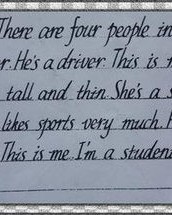 There are four people in
r. He's a driver. This is
tall and thin. She's a s
likes sports very much.
This is me. I'm a studen